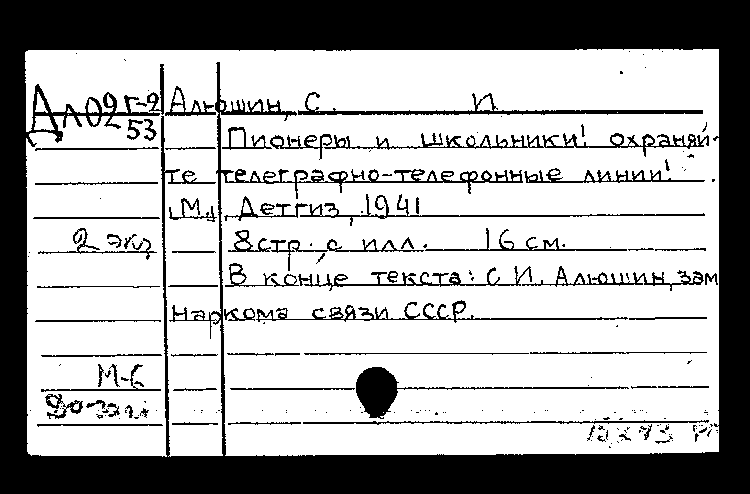 Ал02 г-2 Алюшин, С. И.
53
Пионеры и школьники! охраняй-
те телеграфно-телефонные линии! .
[М.], Детгиз, 1941
2 экз 8 стр. с илл. 16 см.
В конце текста: С И. Алюшин, зам
Наркома связи СССР.
М-6